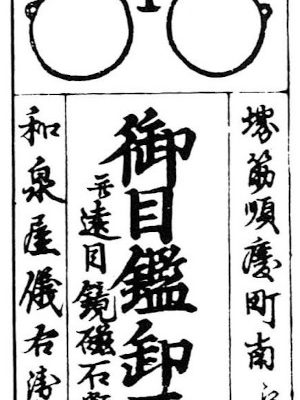 堺筋順慶町南
御目鑑卸
并遠目鏡磁石
和泉屋儀右